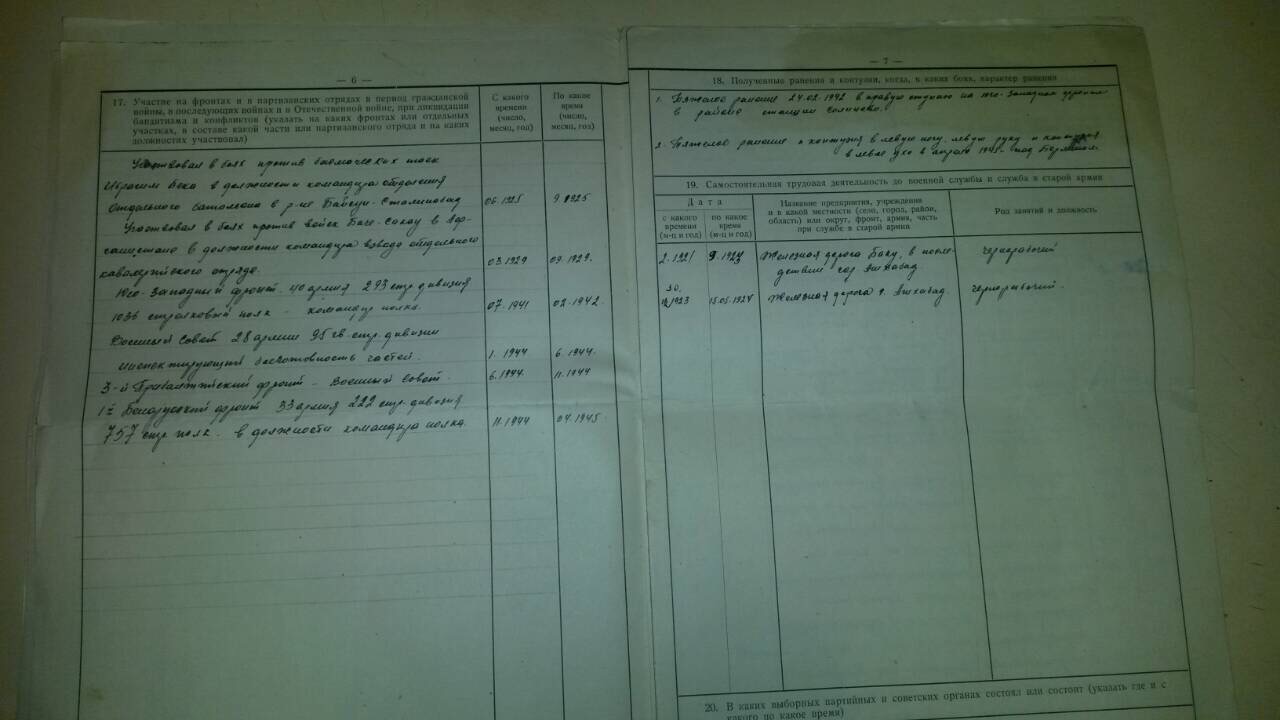 — 6 —
17. Участие на фронтах и в партизанских отрядах в период гражданской
войны, в последующих войнах и в Отечественной войне, при ликвидации
бандитизма и конфликтов (указать на каких фронтах или отдельных
участках, в составе какой части или партизанского отряда и на каких
должностях участвовал)
С какого
времени
(число,
месяц, год)
По какое
время
(число,
месяц, год)
Участвовал в боях против басмаческих шаек
Ибрагим Бека в должности командира отделения
Отдельного батальона в р-не Байсун-Сталинабад 06.1925 9.1925
Участвовал в боях против войск Баче-Сакау в Аф-
ганистане в должности командира взвода отдельного
кавалерийского отряда. 03.1929 09.1929.
Юго-Западный фронт. 40 армия 293 стр. дивизия
1036 стрелковый полк - командир полка. 07.1941 02.1942
Военный Совет 28 армии 95 гв. стр. дивизии
инспектирующий частей. 1.1944 6.1944.
3-й Прибалтийский фронт - Военный Совет. 6.1944. 11.1944
1й Белорусский фронт 33 армия 222 стр. дивизия
757 стр. полк. в должности командира полка. 11.1944 04.1945
— 7 —
18. Полученные ранения и контузии, когда, в каких боях, характер ранения
1. Тяжелое ранение 24.02.1942 в правую на юго-западном фронте
в районе станции
2. Тяжелое ранение и контузия в левую ногу, левую руку и контузия
в левое ухо в апреле 1945г. под Берлином.
19. Самостоятельная трудовая деятельность до военной службы и служба в старой армии
Дата
с какого
времени
(м-ц и год)
по какое
время
(м-ц и год)
Название предприятия, учреждения
и в какой местности (село, город, район,
область) или округ, фронт, армия, часть
при службе в старой армии
Род занятий и должность
2.1921 9.1923 Железная дорога Баку, в после-
дствии гор Ашхабад чернорабочий
15.05.1924 Железная дорога г. Ашхабад. чернорабочий.
20. В каких выборных партийных и советских органах состоял или состоит (указать где и с
какого по какое время)